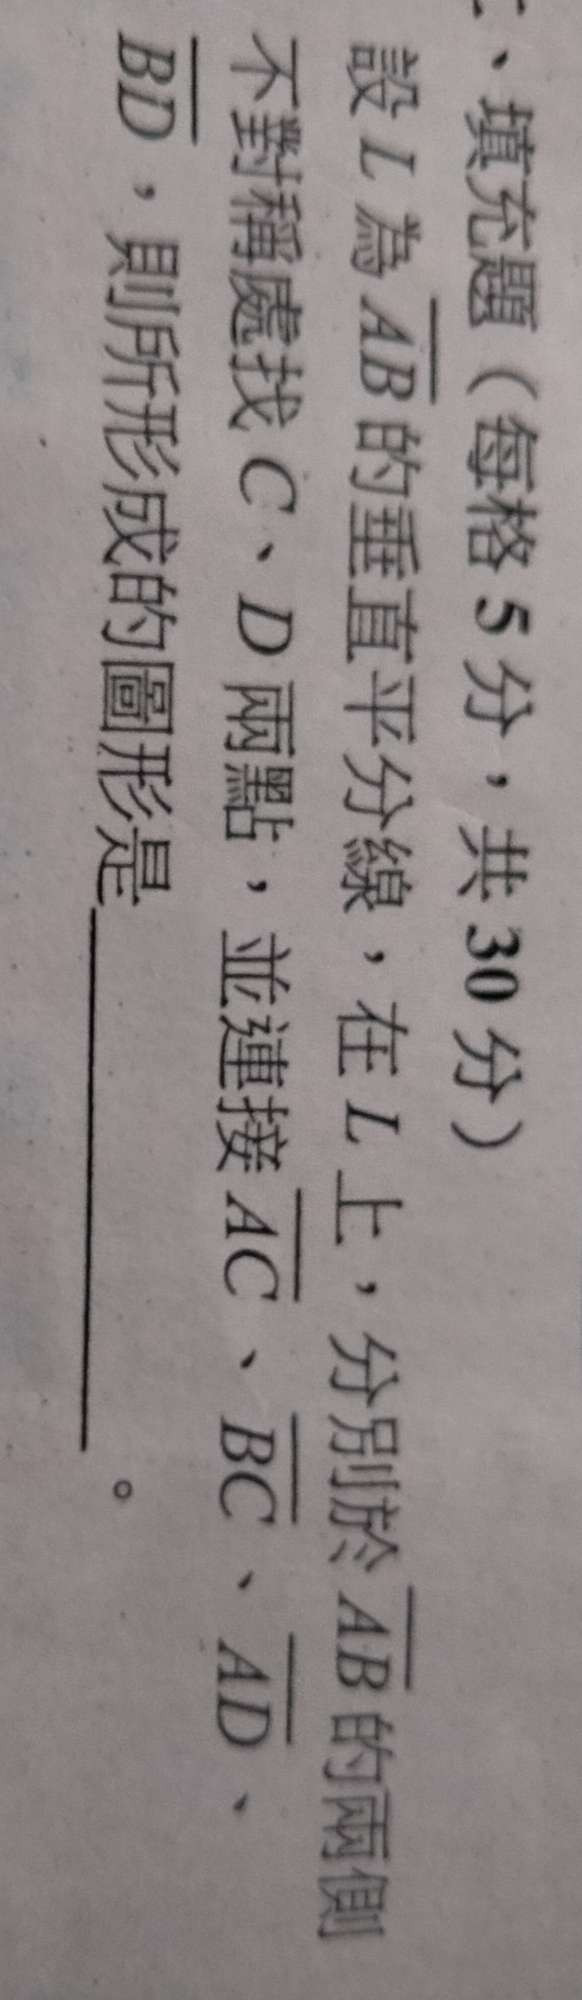 、填充題（每格 5 分，共 30 分）
設 L 為 AB 的垂直平分線，在 L 上，分別於 AB 的兩側
不對稱處找 C、D 兩點，並連接 AC、BC、AD、
BD，則所形成的圖形是＿＿＿＿＿＿。